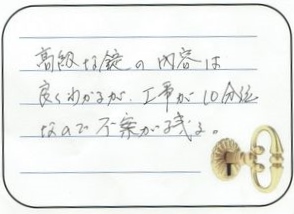 高級な錠の内容は
良くわかるが、工事が10分位
なので不案が残る。